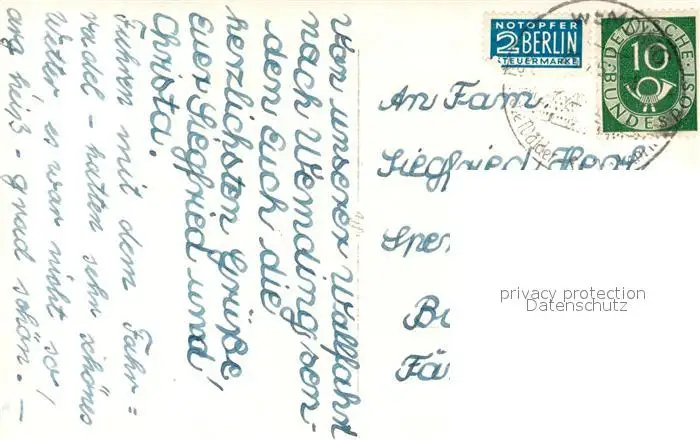 Von unserer Wallfahrt
nach Wemding sen-
den Euch die
herzlichsten Grüße
Euer Siegfried und
Christa.
Fuhren mit dem Fahr=
radel - hatten sehr schönes
Wetter es war nicht so
arg heiß - grad schön. -
NOTOPFER
2 BERLIN
STEUERMARKE
DEUTSCHE
10
BUNDESPOST
An Fam.
Siegfried
privacy protection
Datenschutz